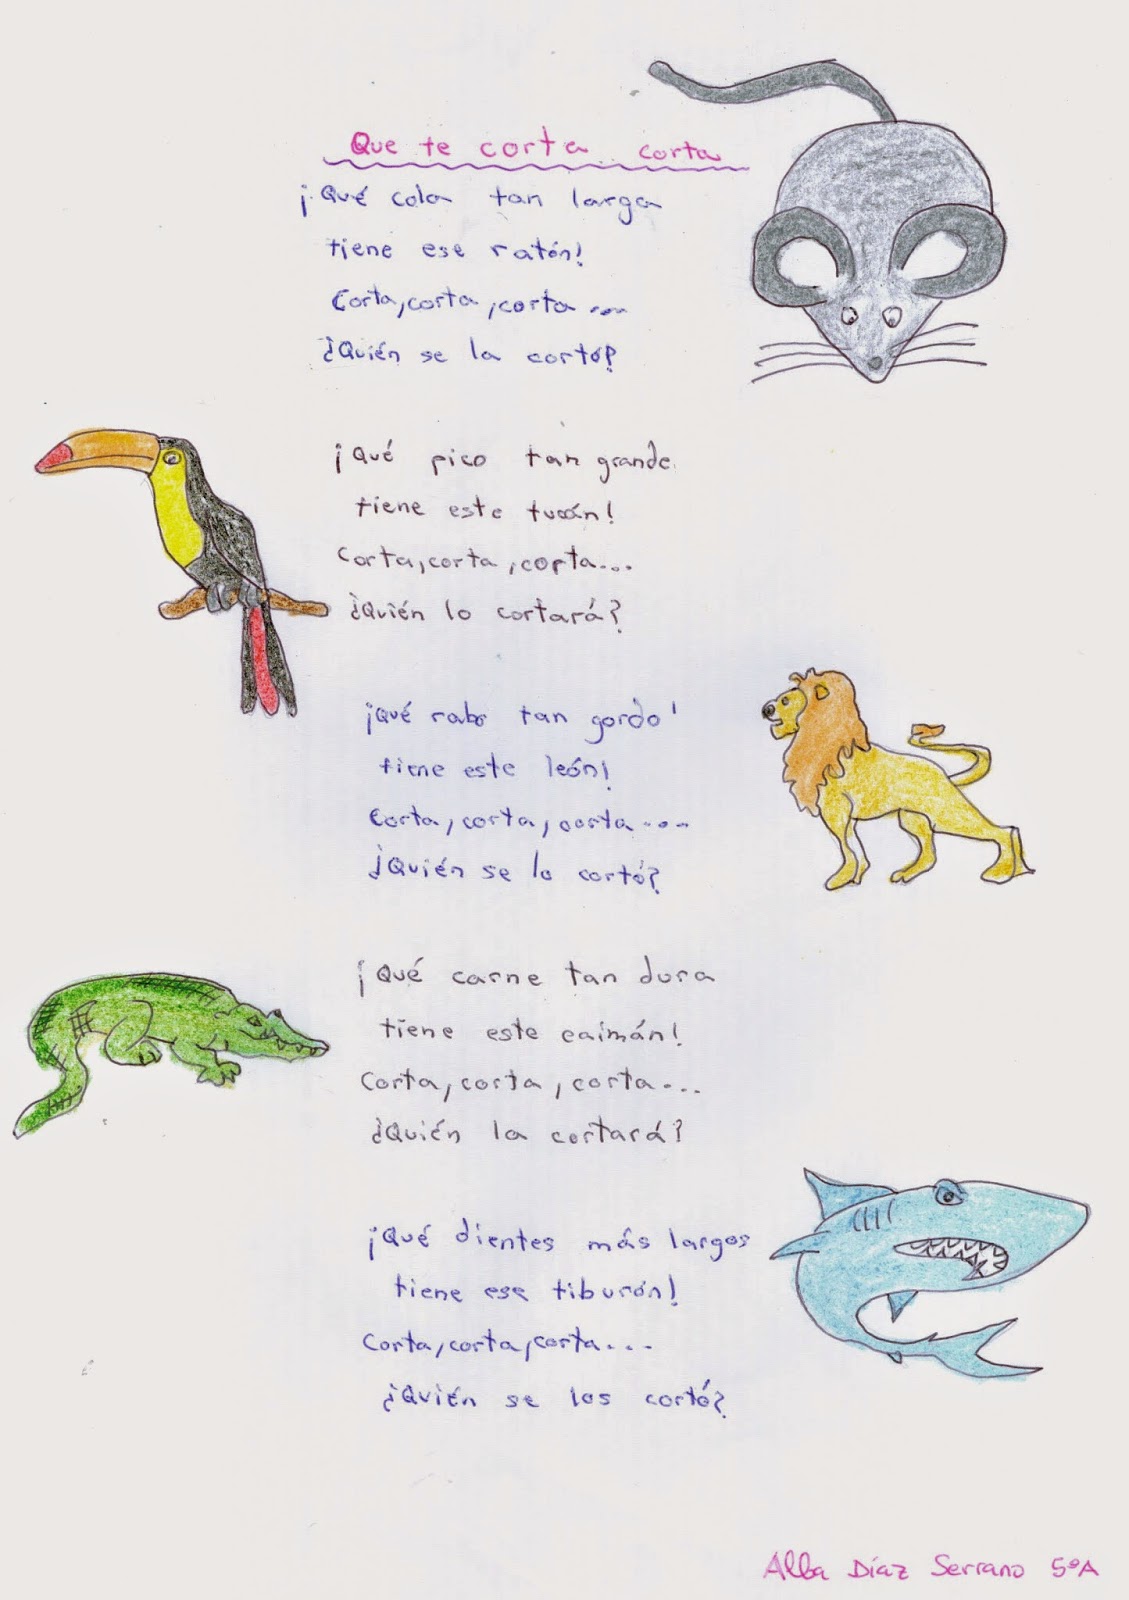 Que te corta corta
¡Qué cola tan larga
tiene ese ratón!
Corta, corta, corta ...
¿Quién se la cortó?
¡Qué pico tan grande
tiene este tucán!
Corta, corta, corta...
¿Quién lo cortará?
¡Qué rabo tan gordo
tiene este león!
Corta, corta, corta....
¿Quién se lo cortó?
¡Qué carne tan dura
tiene este caimán!
Corta, corta, corta...
¿Quién la cortará?
¡Qué dientes más largos
tiene ese tiburón!
Corta, corta, corta...
¿Quién se los cortó?
Alba Díaz Serrano 5ºA